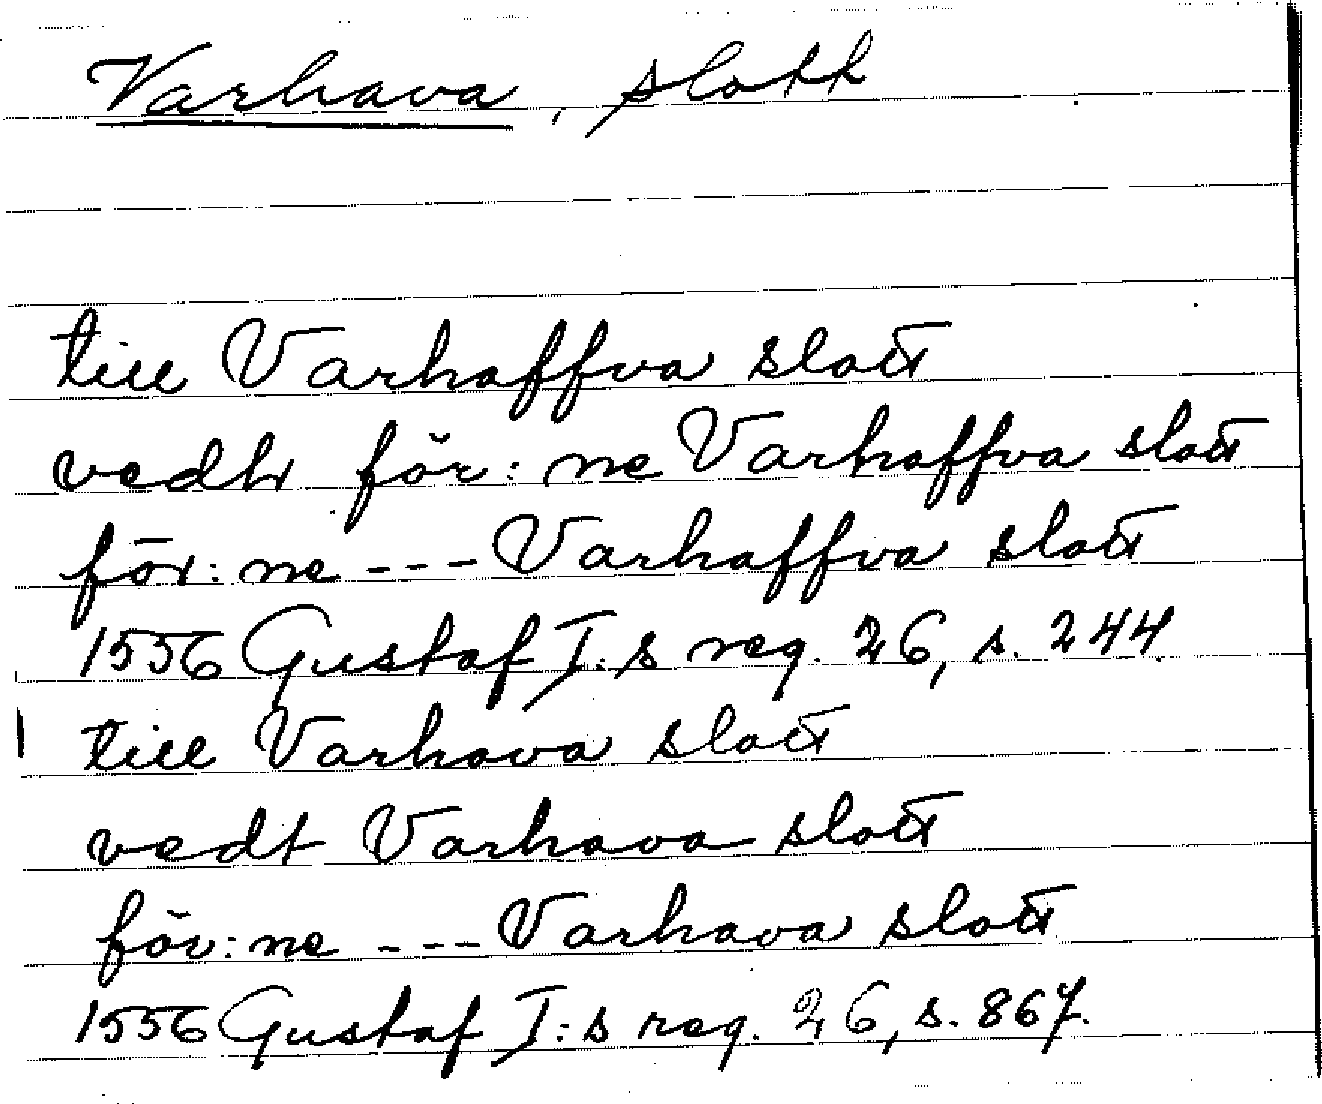 Varhava, slott
till Varhaffva slott
vedh för:ne Varhaffva slott
för:ne --- Varhaffva slott
1556 Gustaf I:s reg. 26, s. 244
till Varhava slott
vedt Varhava slott
för:ne --- Varhava slott
1556 Gustaf I:s reg. 26, s. 867.